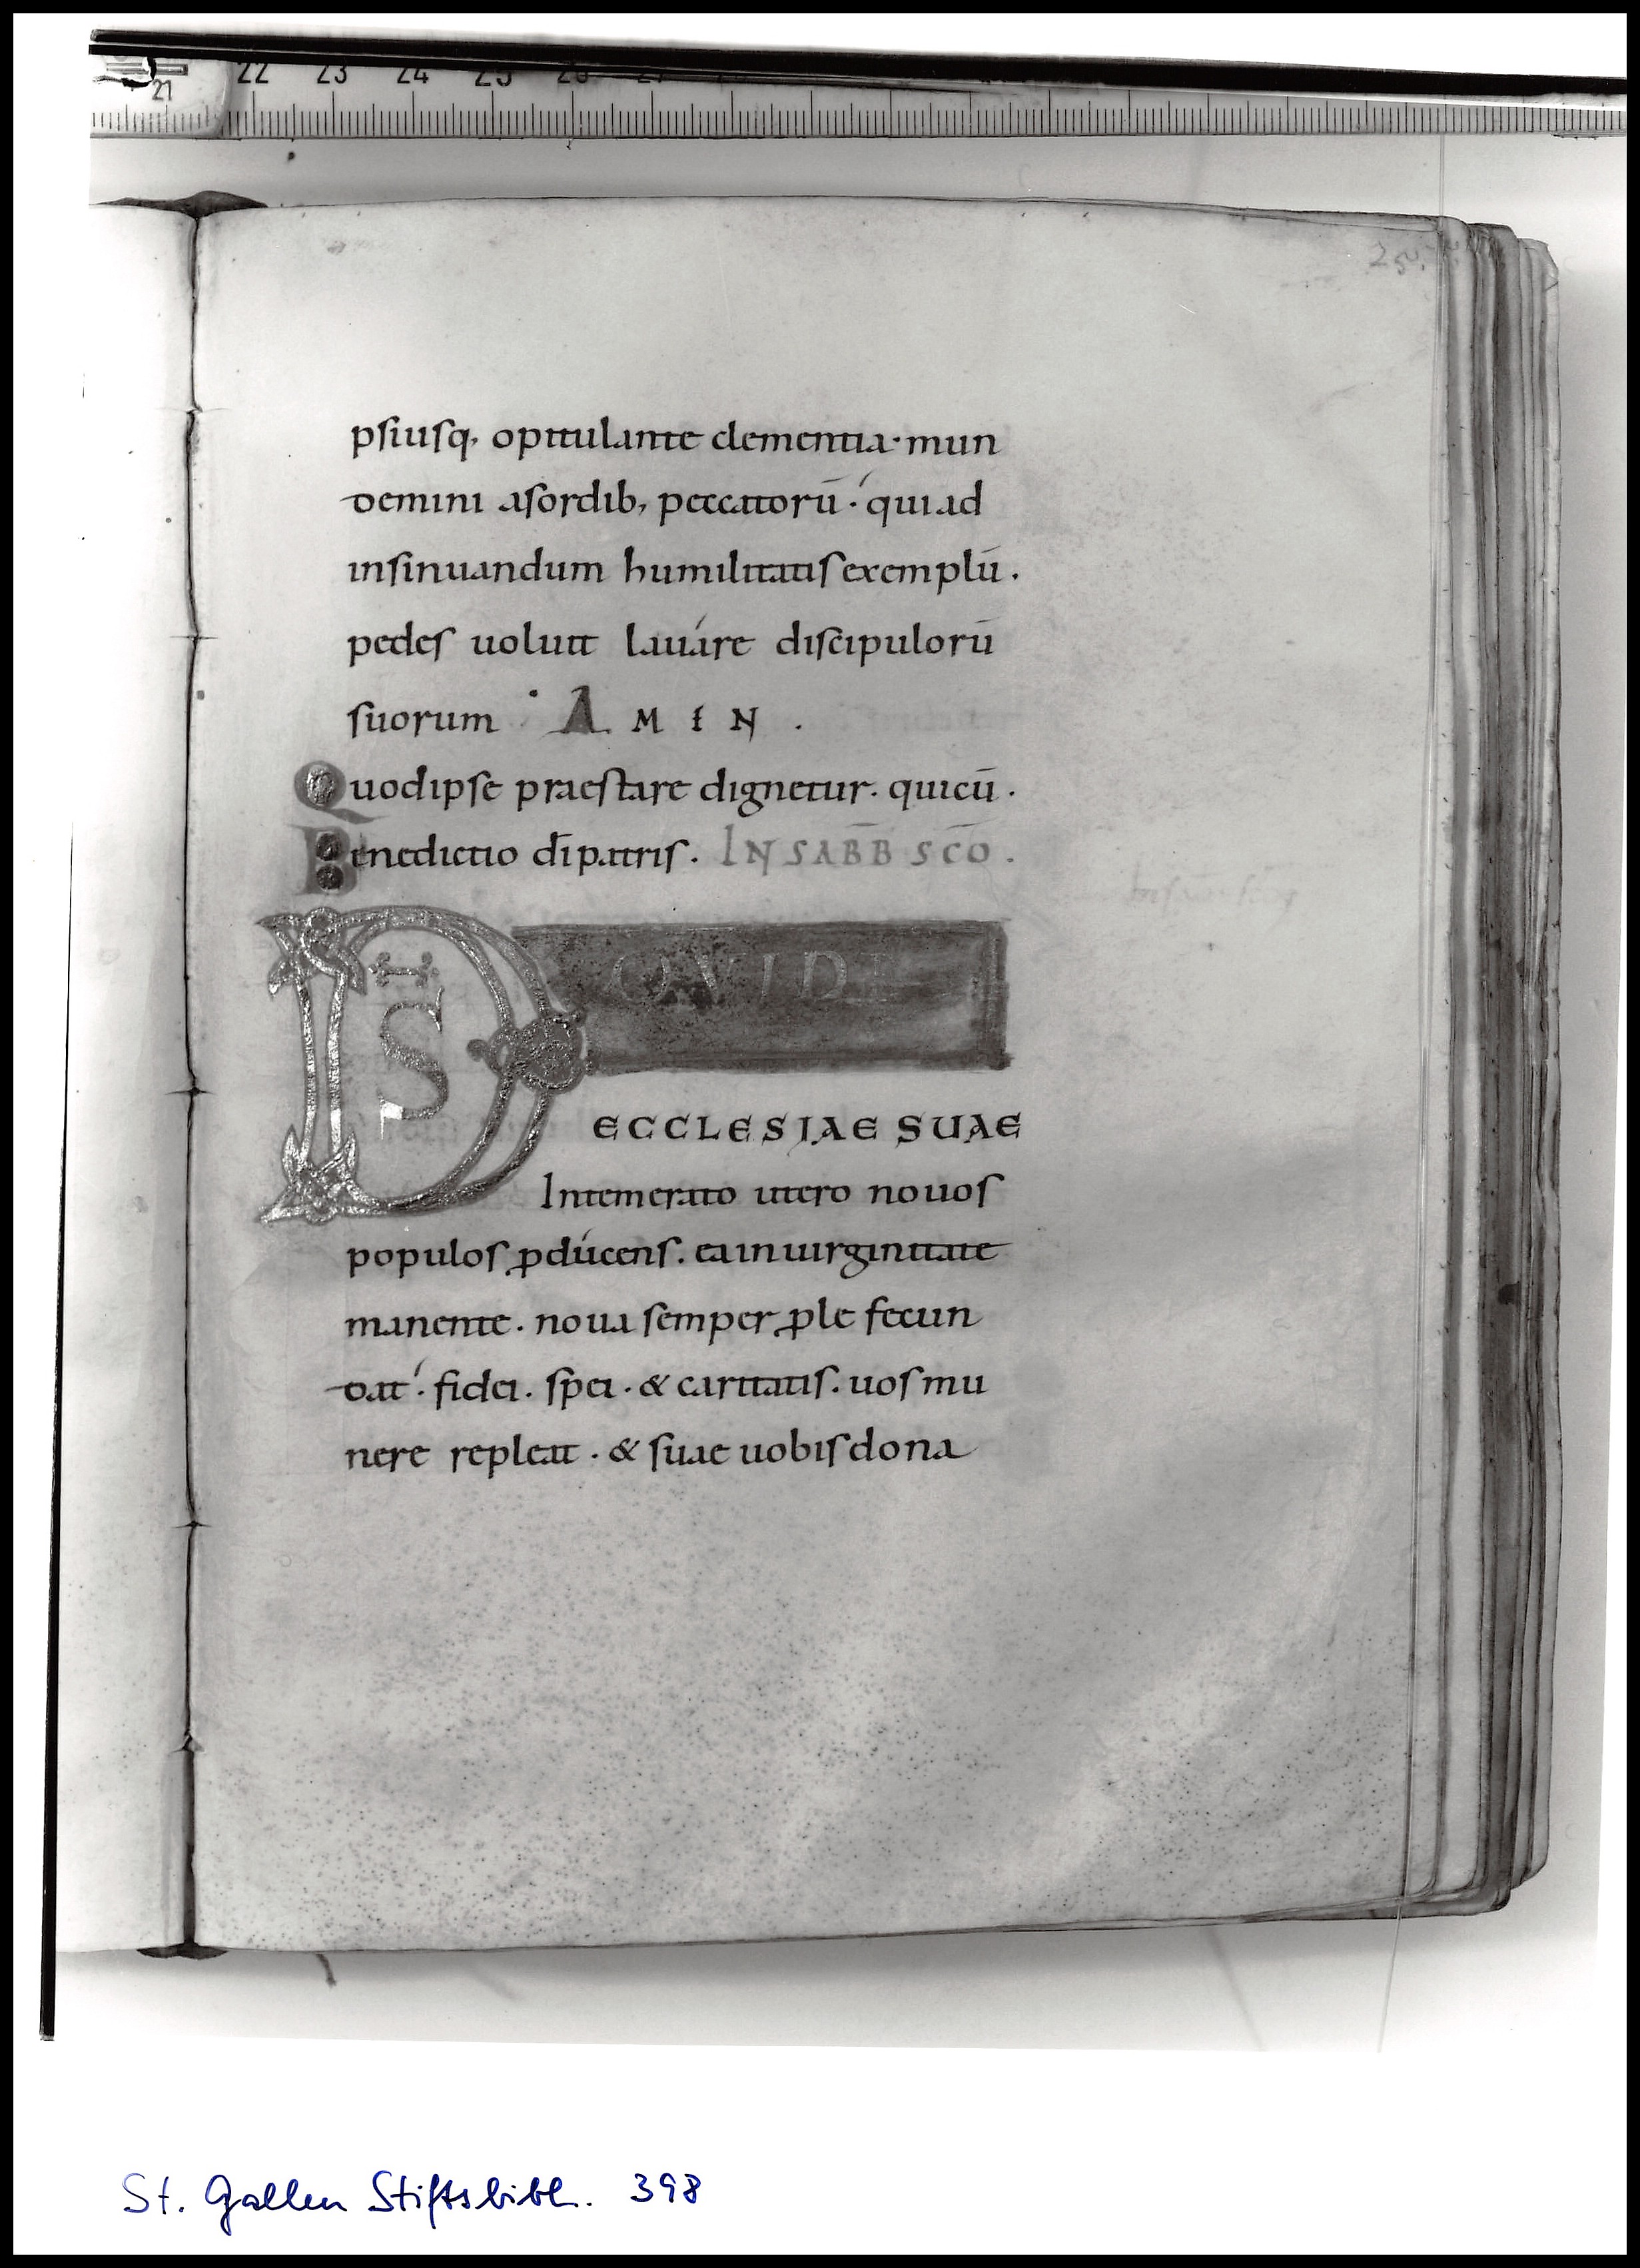 21 22 23 24 25 26 27
psiusq, opitulante clementia · mun
demini asordib, peccatorū · qui ad
insinuandum humilitatis exemplū .
pedes uoluit lauáre discipulorū
suorum · AMEN .
Quod ipse praestare dignetur . quicū .
Benedictio dī patris . IN SABB SCŌ .
D̄S QUI DE
ECCLESIAE SUAE
Intemerato utero nouos
populos ꝓdúcens . ea in uirginitate
manente . noua semper ꝓle fecun
dat · fidei . spei . & caritatis . uos mu
nere repleat . & suae uobis dona
St. Gallen Stiftsbibl. 398